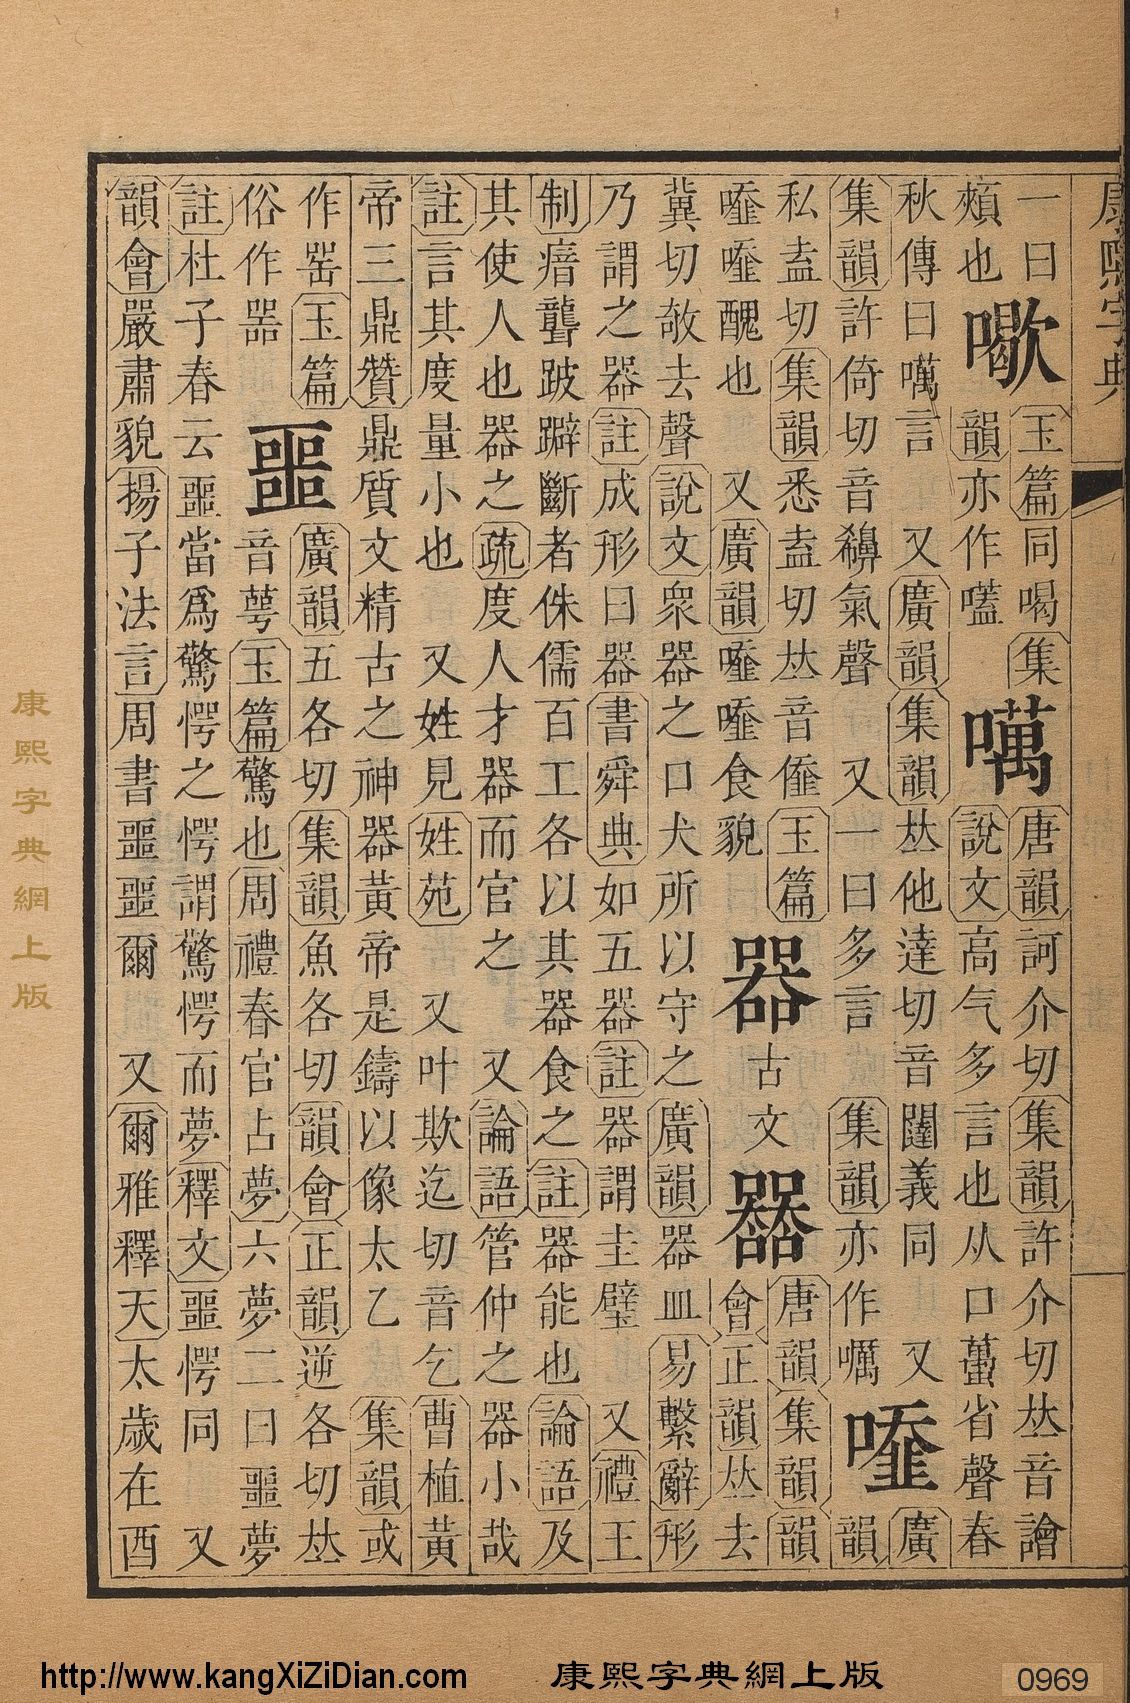 康熙字典
一曰 玉篇同喝集 唐韻訶介切集韻許介切𠀤音譮
頰也 韻亦作 噧 說文高气多言也从口蠆省聲春
秋傳曰噧言 又廣韻集韻𠀤他達切音闥義同 又 廣
集韻許倚切音 氣聲 又一曰多言 集韻亦作㘑 韻
私盍切集韻悉盍切𠀤音 玉篇 唐韻集韻韻
醜也 又廣韻 食貌 器 古文 會正韻𠀤去
冀切欹去聲說文衆器之口犬所以守之廣韻器皿易繫辭形
乃謂之器註成形曰器書舜典如五器註器謂圭璧 又禮王
制瘖聾跛躃斷者侏儒百工各以其器食之註器能也論語及
其使人也器之疏度人才器而官之 又論語管仲之器小哉
註言其度量小也 又姓見姓苑 又叶欺迄切音乞曹植黃
帝三鼎贊鼎質文精古之神器黃帝是鑄以像太乙 集韻或
作㗊玉篇 廣韻五各切集韻魚各切韻會正韻逆各切𠀤
俗作噐 噩 音萼玉篇驚也周禮春官占夢六夢二曰噩夢
註杜子春云噩當爲驚愕之愕謂驚愕而夢釋文噩愕同 又
韻會嚴肅貌揚子法言周書噩噩爾 又爾雅釋天太歲在酉
康熙字典網上版
http://www.kangXiZiDian.com 康熙字典網上版 0969